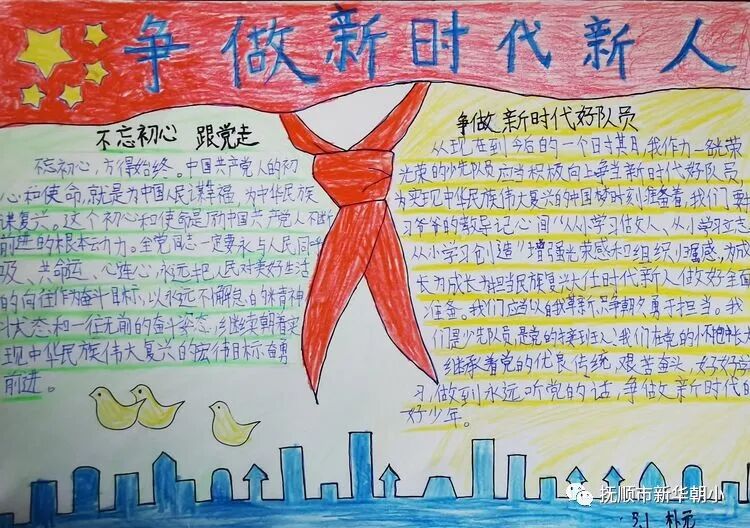 争做新时代新人
不忘初心 跟党走
不忘初心,方得始终。中国共产党人的初
心和使命,就是为中国人民谋幸福,为中华民族
谋复兴。这个初心和使命是励中国共产党人不断
前进的根本动力。全党同志一定要永与人民同呼
吸、共命运、心连心,永远把人民对美好生活
的向往作为奋斗目标,以永远不懈怠的精神
斗大态和一往无前的奋斗姿态,继续朝着实
现中华民族伟大复兴的宏伟目标奋勇
前进。
争做新时代好队员
从现在到今后的一个日子某日,我作为一一名光荣
光荣的少先队员应当积极向上争当新时代好队员,
为实现中华民族伟大复兴的中国梦时刻准备着,我们要
习爷爷的教导记心间“从小学习做人、从小学习立志
从小学习创造”增强光荣感和组织归属感,为成
长为成长为担当民族复兴大任时代新人做好全面
准备。我们应当以只争朝夕勇于担当。我
们是少先队员是党的接班人,我们在党的怀抱中长大
继承着党的优良传统,艰苦奋斗,好好学
习,做到永远听党的话,争做新时代的
好少年。
抚顺市新华朝小
5.1 朴元